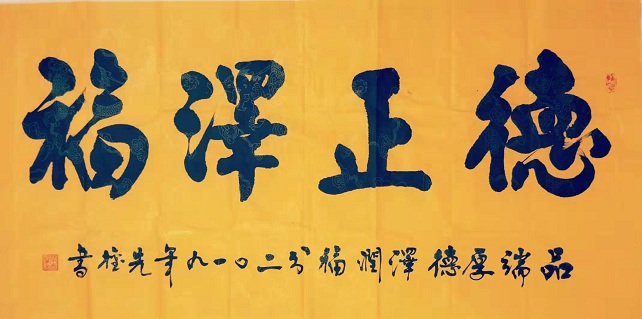 德正澤福
品端厚德澤潤福二〇一九年先書